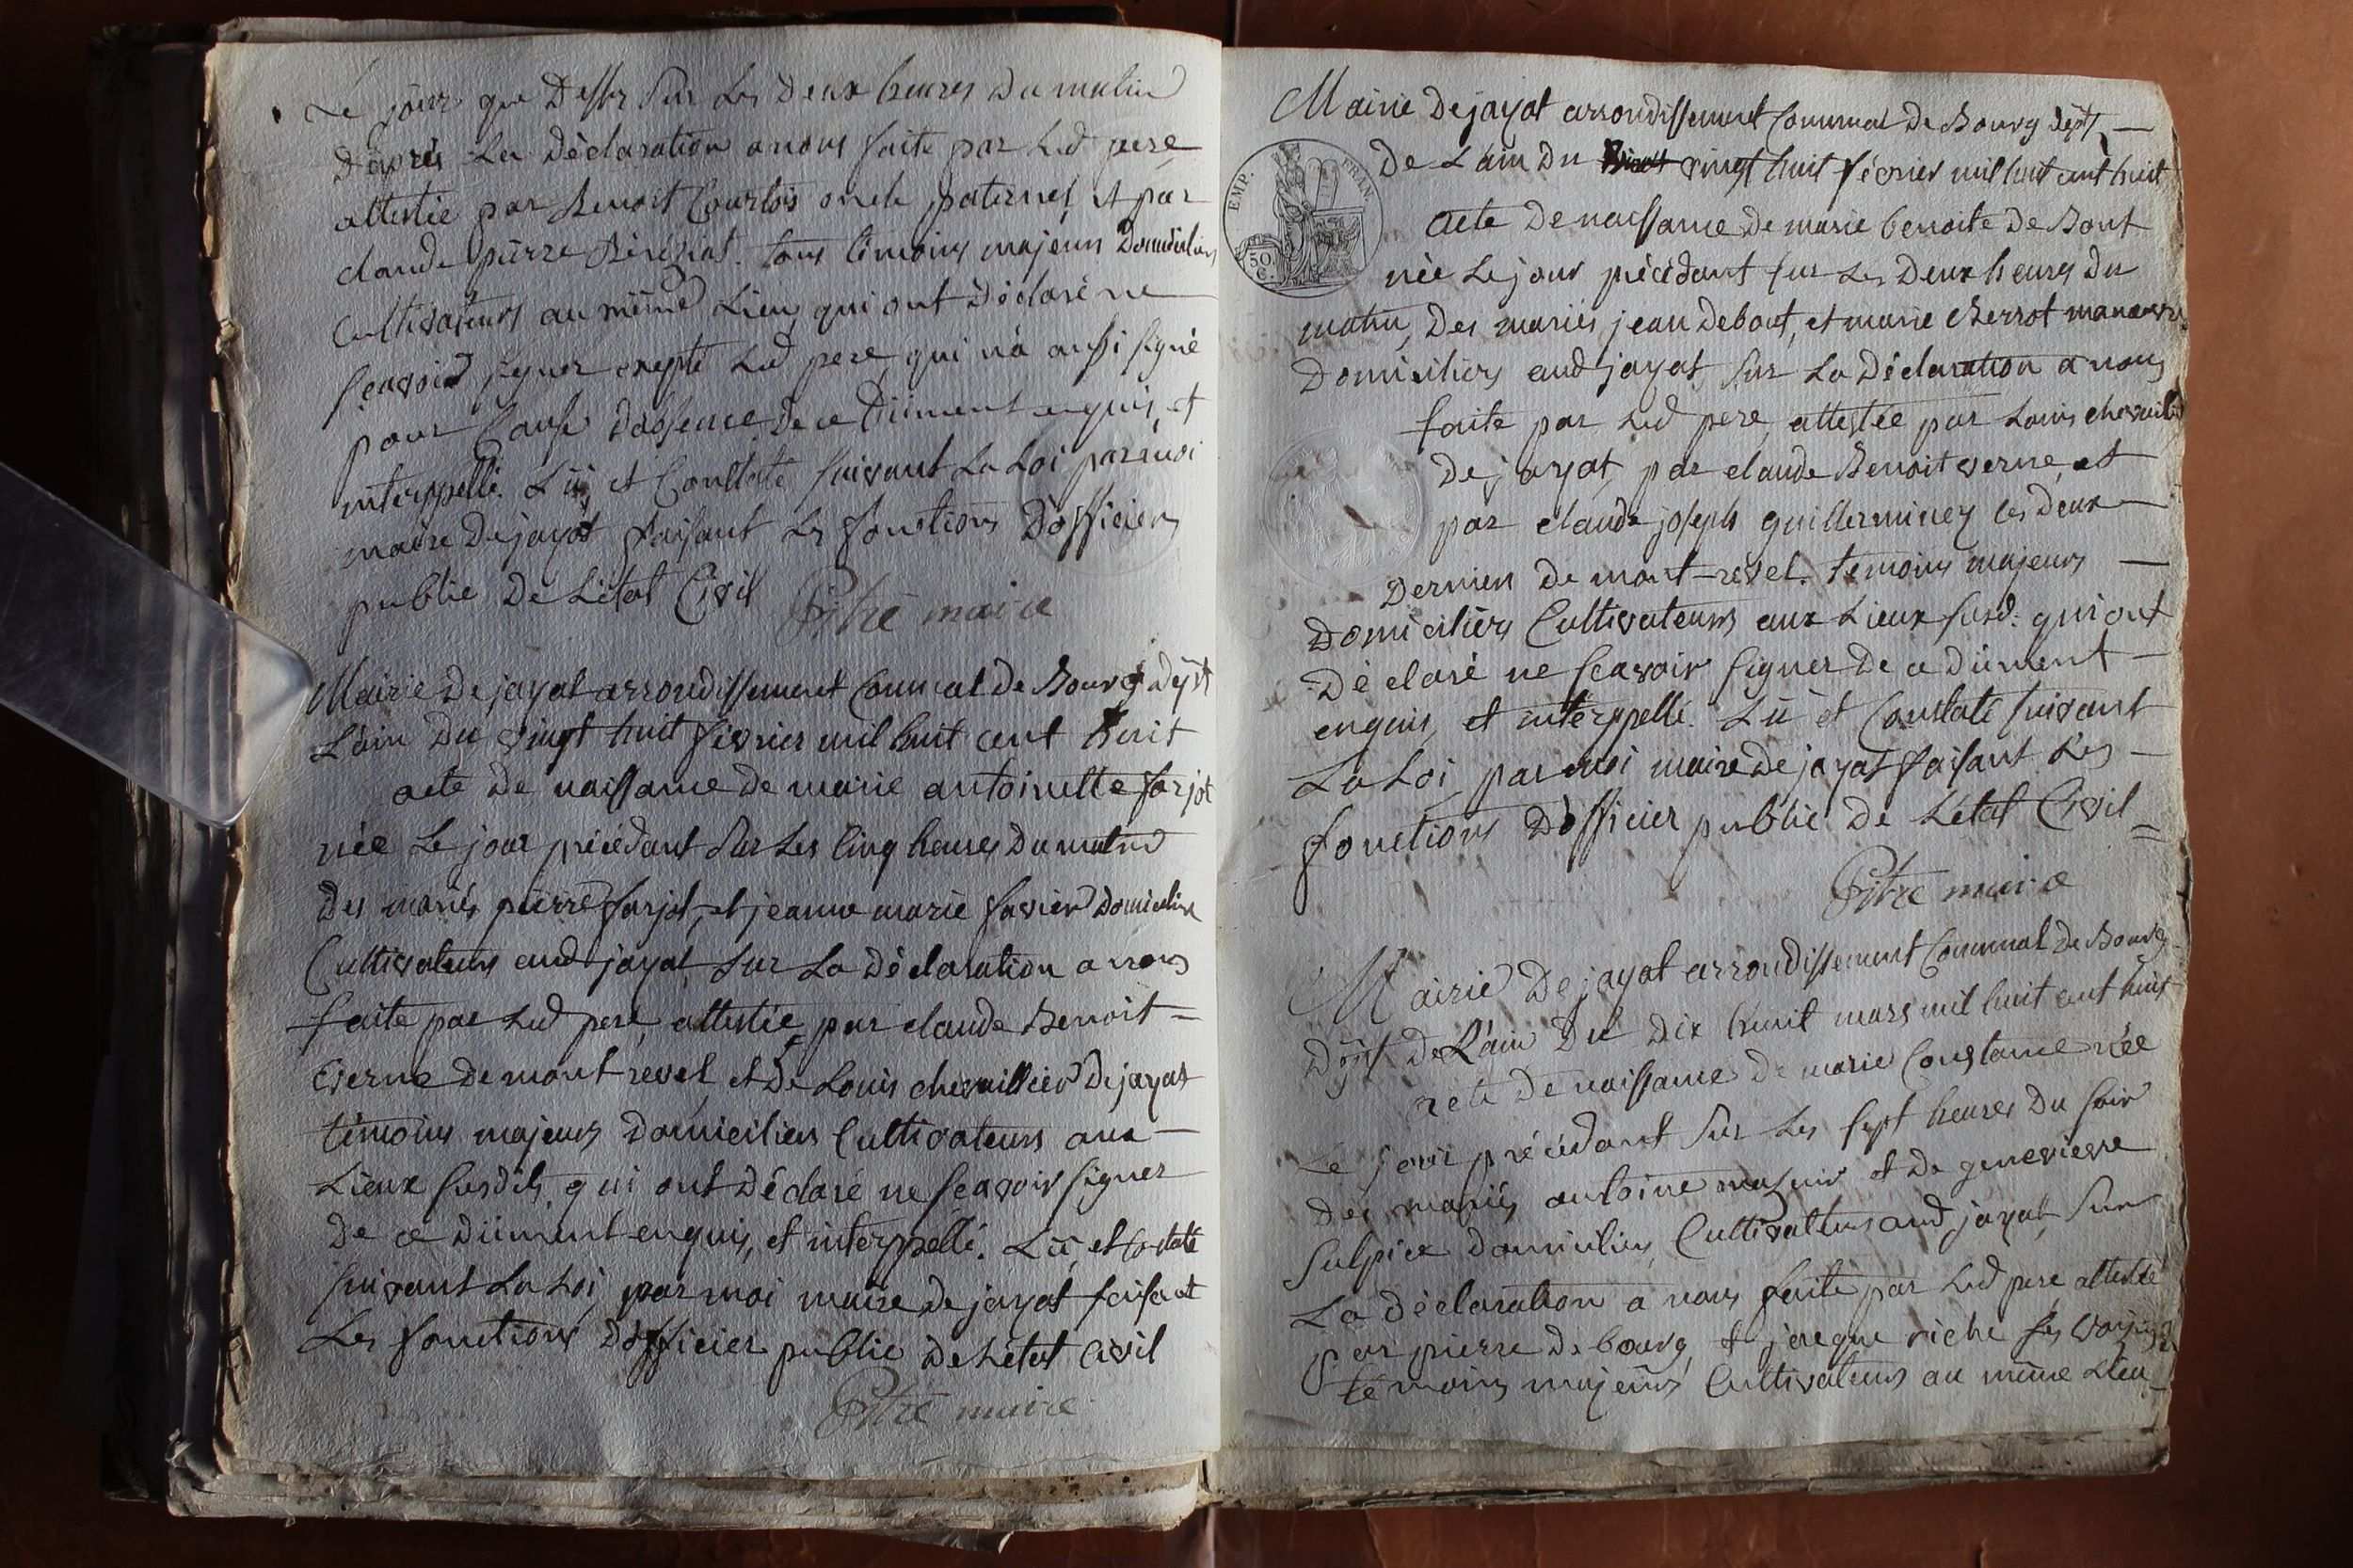 Le jour que Dessus sur Les Deux heures Du matin
D'après La Déclaration a nous faite par Led pere
attestée par Benoit Courtois oncle paternel et par
claude pierre tous témoins majeurs Domiciliés
Cultivateurs au même Lieu, qui ont Déclaré ne
sçavoir signer excepté Led pere, qui n'a aussi signé
pour Cause D'absence, De ce Düment enquis, et
interppellé. Lü, et Constaté suivant La Loi par moi
maire De jayat faisant Les fonctions D'officier
public De L'état Civil
Pitre maire
Mairie De jayat arrondissement Communal De Bourg Dépt
L'ain Du vingt huit février mil huit cent huit
acte De naissance de marie antoinette farjot
née Le jour précédant Sur Les Cinq heures Du matin
Des mariés pierre farjot, et jeanne marie favier Domiciliés
Cultivateurs aud jayat, Sur La Déclaration a nous
faite par Led pere, attestée par claude Benoit =
verne de mont revel, et De Louis chevaillier De jayat
témoins majeurs Domiciliés Cultivateurs aux —
Lieux susdits, qui ont Déclaré ne sçavoir signer
De ce Düment enquis, et interppellé. Lü, et Costaté
suivant La Loi, par moi maire De jayat faisant
Les fonctions D'officier public De L'état Civil
Pitre maire
Mairie De jayat arrondissement Communal De Bourg Dépt —
De L'ain Du vingt huit février mil huit cent huit
EMP. FRAN.
50 C.
acte De naissance De marie benoite De Bont
née Le jour précédant sur Les Deux heures Du
matin, Des mariés jean Debont, et marie cherrot manœuvres
Domiciliés aud jayat, Sur La Déclaration a nous
faite par Led pere, attestée par Louis chevaillier
De jayat, par claude Benoit verne, et
par claude joseph guillerminey les Deux —
Derniers De mont-revel. témoins majeurs —
Domiciliés Cultivateurs aux Lieux susd: qui ont
Déclaré ne sçavoir signer De ce Düment —
enquis, et interppellé. Lü et Constaté suivant
La Loi, par moi maire De jayat faisant Les —
fonctions D'officier public De L'état Civil =
Pitre maire
Mairie De jayat arrondissement Communal De Bourg
Dépt De L'ain Du Dix huit mars mil huit cent huit
acte De naissance De marie Constance née
Le jour précédant Sur Les sept heures Du soir
Des mariés antoine et De genevieve
Sulpice Domiciliés Cultivateurs aud jayat, Sur
La Déclaration a nous faite par Led pere attesté
par pierre De bourg, et jacque riche ses voisins
témoins majeurs Cultivateurs au même Lieu —